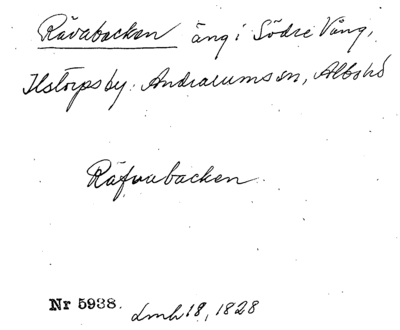 Rävabacken äng i Södre Vång,
Ilstorps by. Andrarums sn, Albo hd
Räfvabacken.
Nr 5938. Lmh 18, 1828